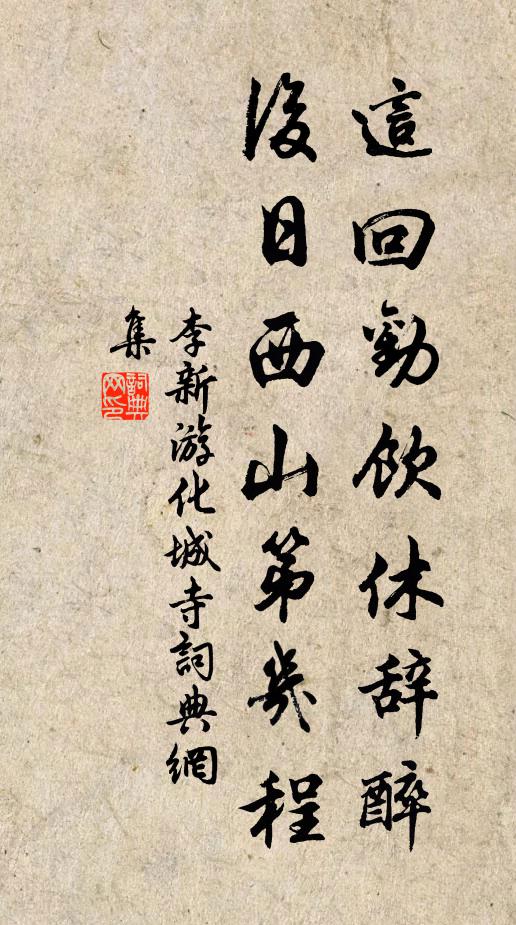 這回勸飲休辞醉
後日西山第幾程
李新游化城寺詞典網
集
詞典
网印